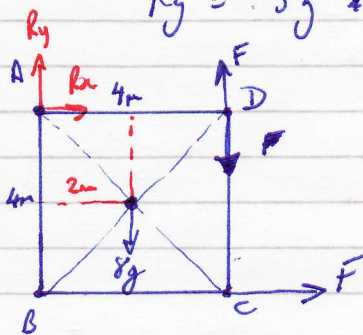 Ry = . 3g
Ry
F
A
Rx
4m
D
F
4m
2m
8g
F
B
C